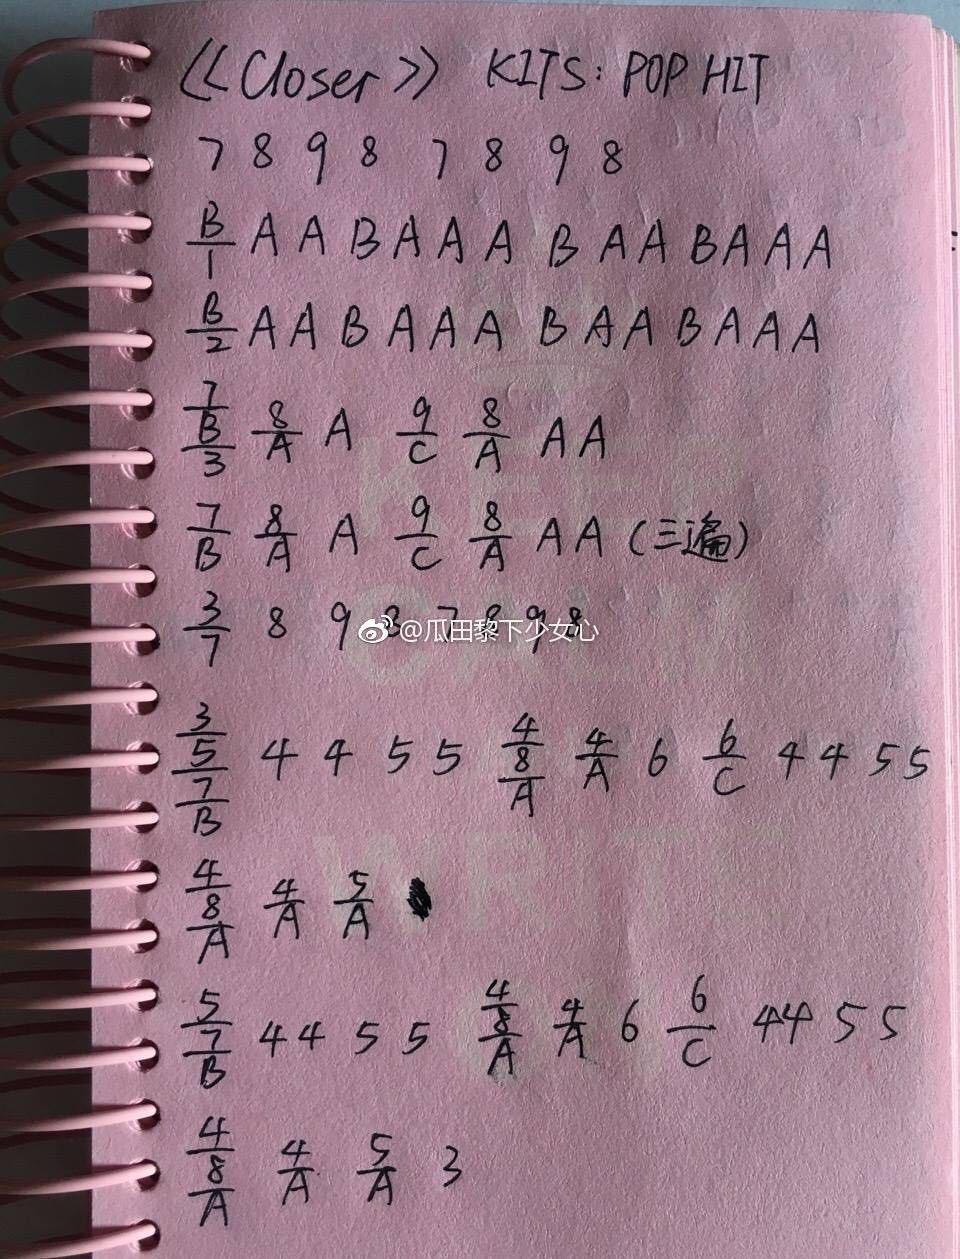 《Closer》 KITS: POP HIT
7 8 9 8 7 8 9 8
B/1 A A B A A A B A A B A A A
B/2 A A B A A A B A A B A A A
7/B/3 8/A A 9/C 8/A A A
7/B 8/A A 9/C 8/A A A (三遍)
3/7 8 9 8 7 8 9 8
@瓜田黎下少女心
3/5/7/B 4 4 5 5 4/8/A 4/A 6 6/C 4 4 5 5
4/8/A 4/A 5/A
5/7/B 4 4 5 5 4/8/A 4/A 6 6/C 4 4 5 5
4/8/A 4/A 5/A 3
KEEP
CALM
WRITE